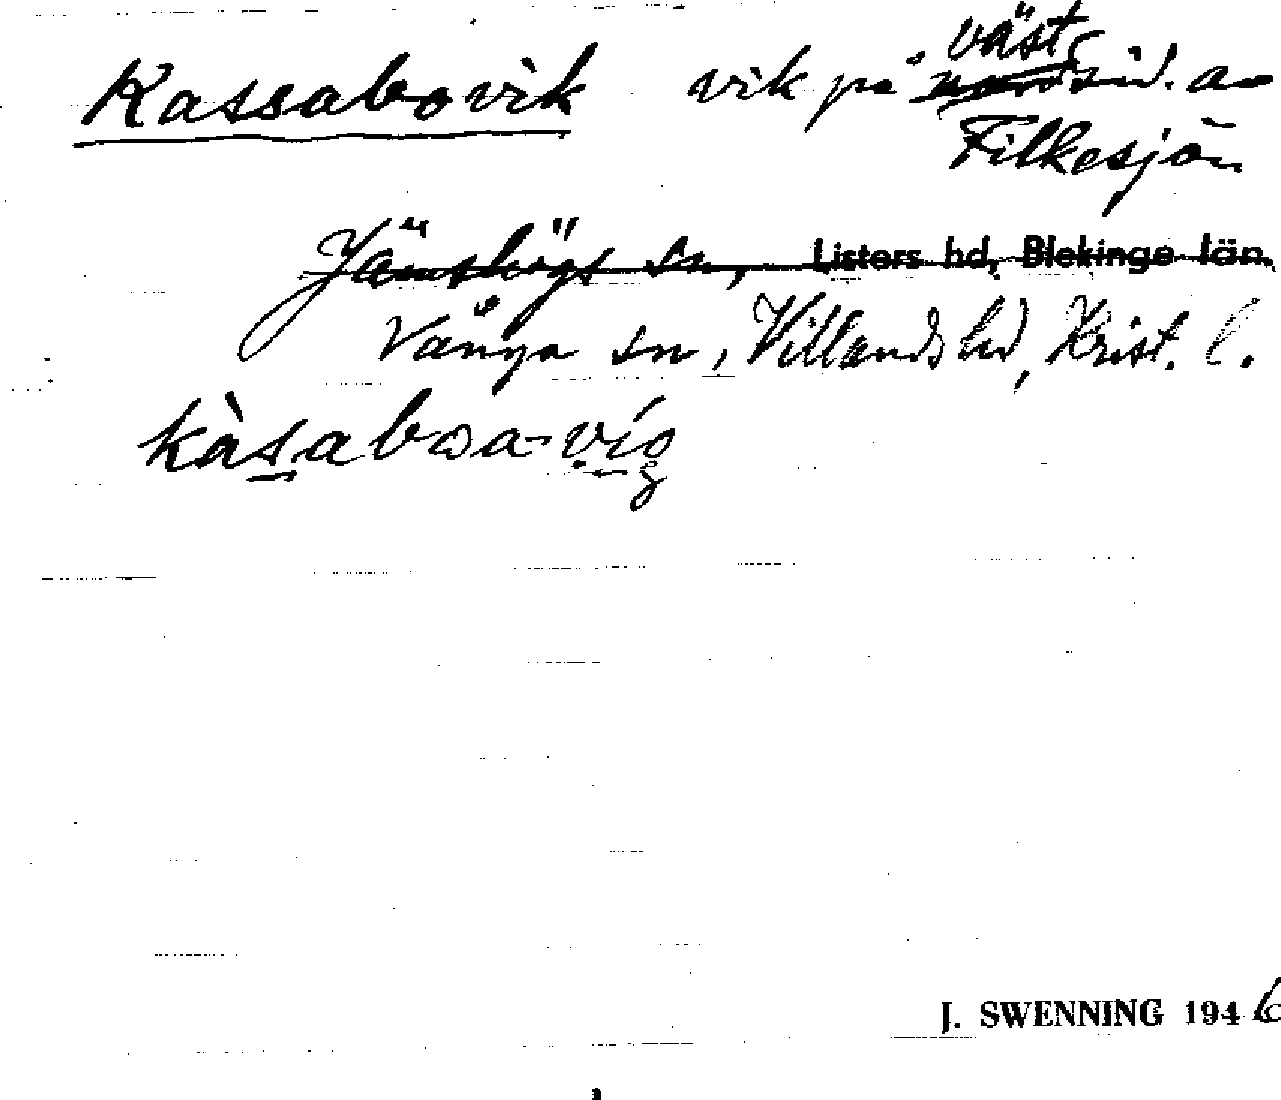 Kassabovik vik på väst sid. av
Filkesjön
Jämshögs sn, Listers hd, Blekinge län.
Vånga sn, Villands hd, Krist. l.
kàsaboa-víg
J. SWENNING 1946